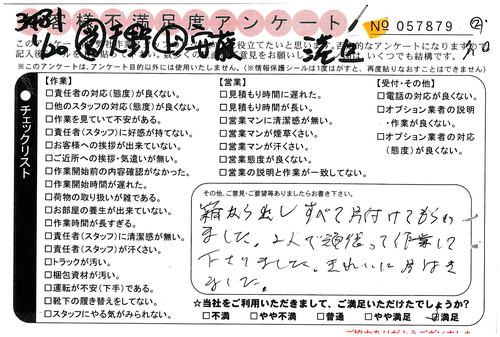 お客様不満足度アンケート
No 057879
記入後
※このアンケートは、アンケート目的以外には使用いたしません。(※情報保護シールは1度はがすと、再度貼りなおすことはできません)
●チェックリスト
【作業】
□責任者の対応(態度)が良くない。
□他のスタッフの対応(態度)が良くない。
□作業を見ていて不安がある。
□責任者(スタッフ)に好感が持てない。
□お客様への挨拶が出来ていない。
□ご近所への挨拶・気遣いが無い。
□作業開始前の内容確認がなかった。
□作業開始時間が遅れた。
□荷物の取り扱いが雑である。
□お部屋の養生が出来ていない。
□作業時間が長すぎる。
□責任者(スタッフ)に清潔感が無い。
□責任者(スタッフ)が汗くさい。
□トラックが汚い。
□梱包資材が汚い。
□運転が不安(下手)である。
□靴下の履き替えをしてない。
□スタッフにやる気がみられない。
【営業】
□見積もり時間に遅れた。
□見積もり時間が長い。
□営業マンに清潔感が無い。
□営業マンが煙草くさい。
□営業マンが汗くさい。
□営業態度が良くない。
□営業の説明と作業が一致してない。
【受付・その他】
□電話の対応が良くない。
□オプション業者の説明
・作業が良くない。
□オプション業者の対応
(態度)が良くない。
その他、ご意見・ご要望等ありましたらお書き下さい。
箱から出しすべて片付けてもらい
ました。2人で頑張って作業して
下さりました。きれいに片付き
ました。
☆当社をご利用いただきまして、ご満足いただけたでしょうか?
□不満 □やや不満 □普通 □やや満足 ☑満足
ご協力ありがとうございました